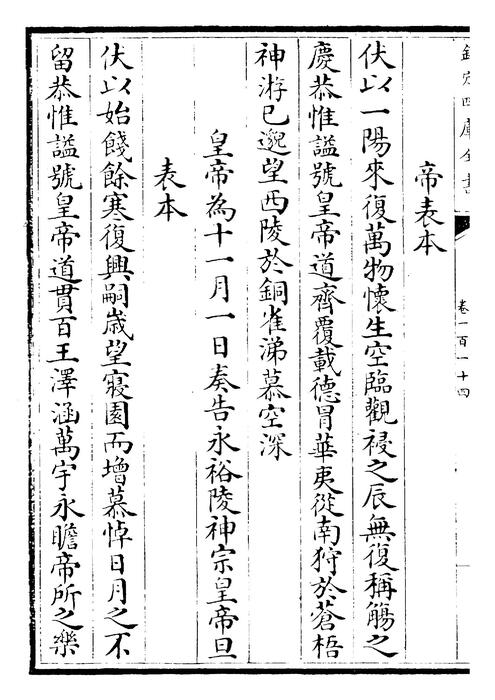 欽定四庫全書
卷一百一十四
帝表本
伏以一陽來復萬物懷生空臨觀祲之辰無復稱觴之
慶恭惟謚號皇帝道齊覆載德冐華夷從南狩於蒼梧
神游已邈望西陵於銅雀涕慕空深
皇帝為十一月一日奏告永裕陵神宗皇帝旦
表本
伏以始餞餘寒復興嗣歳望寢園而增慕悼日月之不
留恭惟謚號皇帝道貫百王澤涵萬宇永瞻帝所之樂